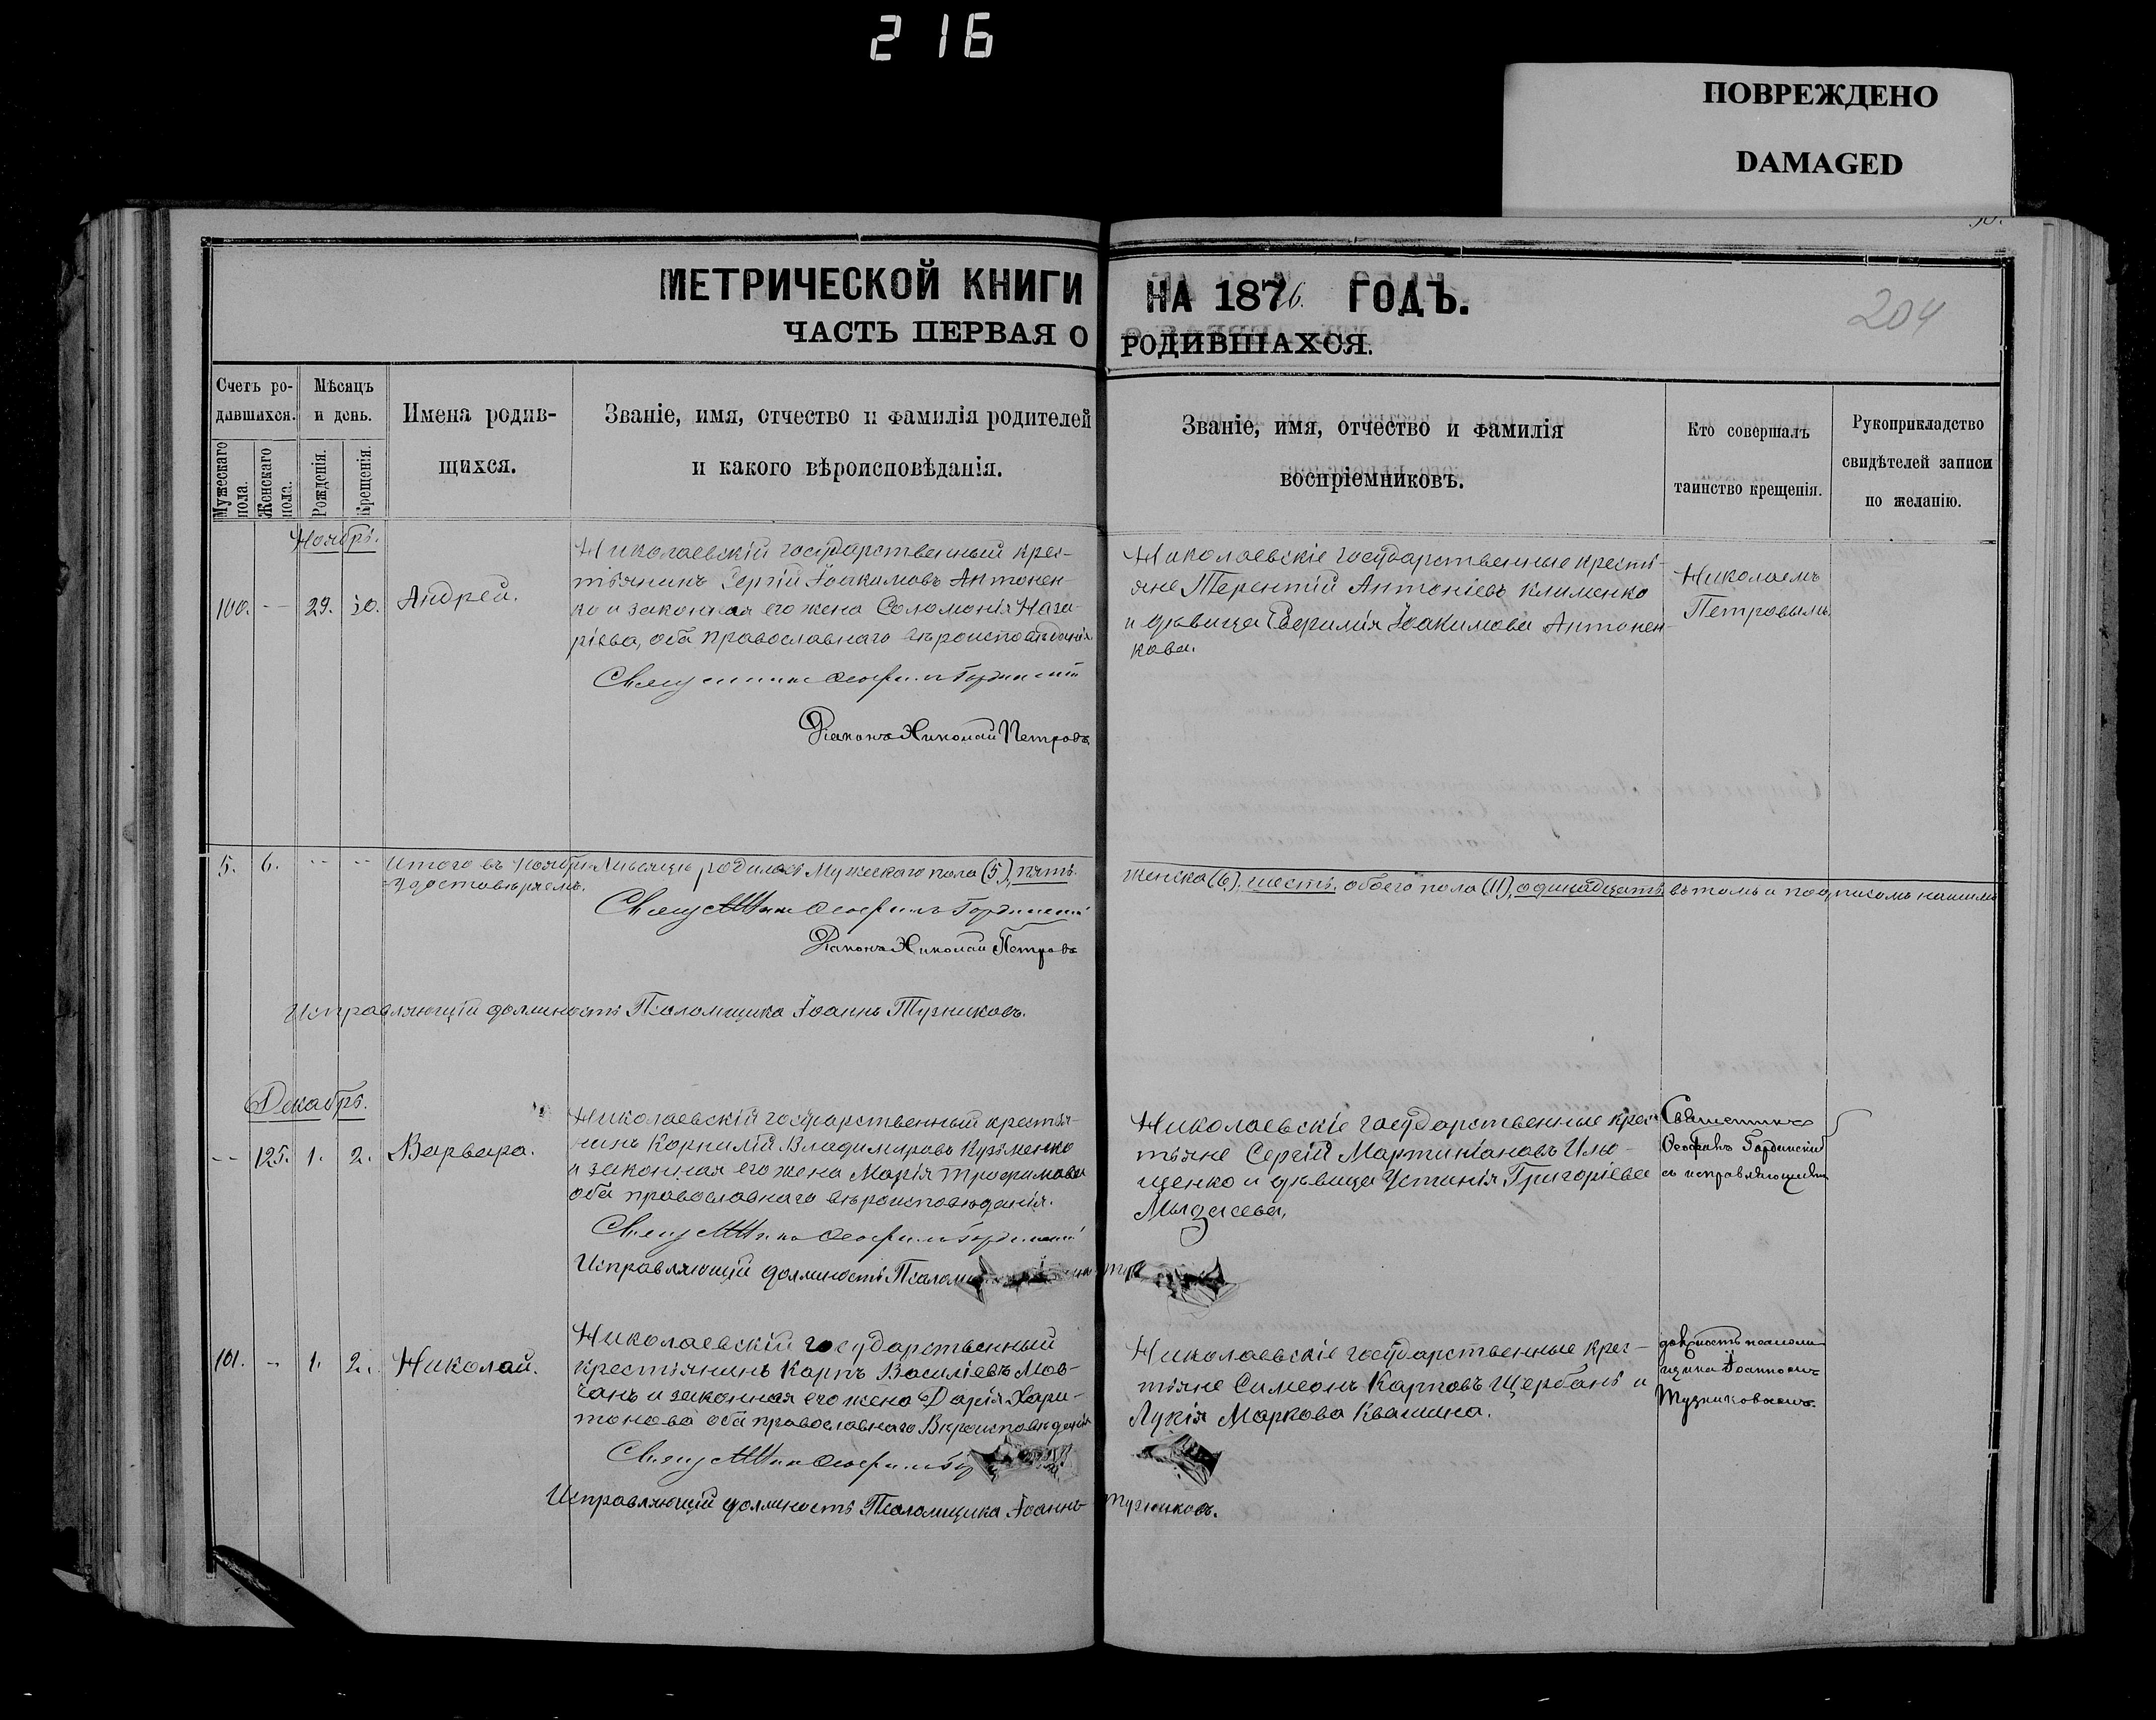 216
ПОВРЕЖДЕНО
DAMAGED
МЕТРИЧЕСКОЙ КНИГИ НА 1876. ГОДЪ.
204
ЧАСТЬ ПЕРВАЯ О РОДИВШАХСЯ.
Счетъ ро-
дившихся.
Мужескаго пола.
Женскаго пола.
Мѣсяцъ
и день.
Рожденія.
Крещенія.
Имена родив-
шихся.
Званіе, имя, отчество и фамилія родителей
и какого вѣроисповѣданія.
Званіе, имя, отчество и фамилія
воспріемниковъ.
Кто совершалъ
таинство крещенія.
Рукоприкладство
свидѣтелей записи
по желанію.
Ноябрь.
100. -- 29. 30. Андрей.
Николаевскій государственный крес-
тьянинъ Сергій Іоакимовъ Антонен-
ко и законная его жена Соломонія Наза-
рієва, оба православнаго вѣроисповѣданія
Священникъ Ѳеофилъ Гординскій
Діаконъ Николай Петровъ
Николаевскіе государственные кресть-
яне Терентій Антоніевъ Клименко
и дѣвица Евфимія Іоакимова Антонен-
кова.
Николаемъ
Петровымъ.
5. 6. -- -- Итого въ Ноябрѣ мѣсяцѣ родилось Мужескаго пола (5), пять.
женска (6), шесть, обоего пола (11), одинадцать въ томъ и подписомъ нашимъ
удостовѣряемъ.
Священникъ Ѳеофилъ Гординскій
Діаконъ Николай Петровъ
Исправляющій должность Псаломщика Іоаннъ Тузниковъ.
Декабрь.
-- 125. 1. 2. Варвара.
Николаевскій государственный крестья-
нинъ Корнилій Владимировъ Кузьменко
и законная его жена Марія Трофимова
оба православнаго вѣроисповѣданія.
Священникъ Ѳеофилъ Гординскій
Исправляющій должность Псалом
Николаевскіе государственные крес-
тьяне Сергій Мартиніановъ Илю-
щенко и дѣвица Устинія Григоріева
Священникъ
Ѳеофилъ Гординскій
съ исправляющимъ
101. -- 1. 2. Николай.
Николаевскій государственный
крестьянинъ Карпъ Василіевъ Мов-
чанъ и законная его жена Дарія Хари-
тонова оба православнаго Вѣроисповѣданія
Священникъ Ѳеофилъ
Исправляющій должность Псаломщика Іоаннъ Тузниковъ.
Николаевскіе государственные крес-
тьяне Симеонъ Карповъ Щербань и
Лукія Маркова Квашина.
должность псалом-
щика Іоанномъ
Тузниковымъ.